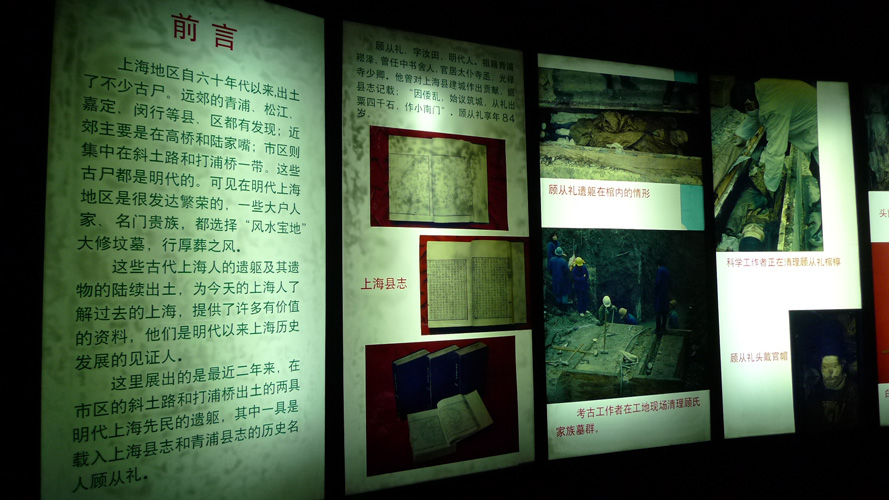 前言
上海地区自六十年代以来,出土
了不少古尸。远郊的青浦、松江、
嘉定、闵行等县、区都有发现；近
郊主要是在高桥和陆家嘴；市区则
集中在斜土路和打浦桥一带。这些
古尸都是明代的。可见在明代上海
地区是很发达繁荣的，一些大户人
家、名门贵族，都选择“风水宝地”
大修坟墓，行厚葬之风。
这些古代上海人的遗躯及其遗
物的陆续出土，为今天的上海人了
解过去的上海，提供了许多有价值
的资料，他们是明代以来上海历史
发展的见证人。
这里展出的是最近二年来，在
市区的斜土路和打浦桥出土的两具
明代上海先民的遗躯，其中一具是
载入上海县志和青浦县志的历史名
人顾从礼。
顾从礼，字汝由，明代人。祖籍青浦
崧泽，曾任中书舍人，官居太仆寺丞，光禄
寺少卿。他曾对上海县建城作出贡献，据
县志记载：“因倭乱，始议筑城，从礼出
粟四千石，作小南门”。顾从礼享年84
岁。
上海县志
顾从礼遗躯在棺内的情形
考古工作者在工地现场清理顾氏
家族墓群。
科学工作者正在清理顾从礼棺椁
顾从礼头戴官帽
头